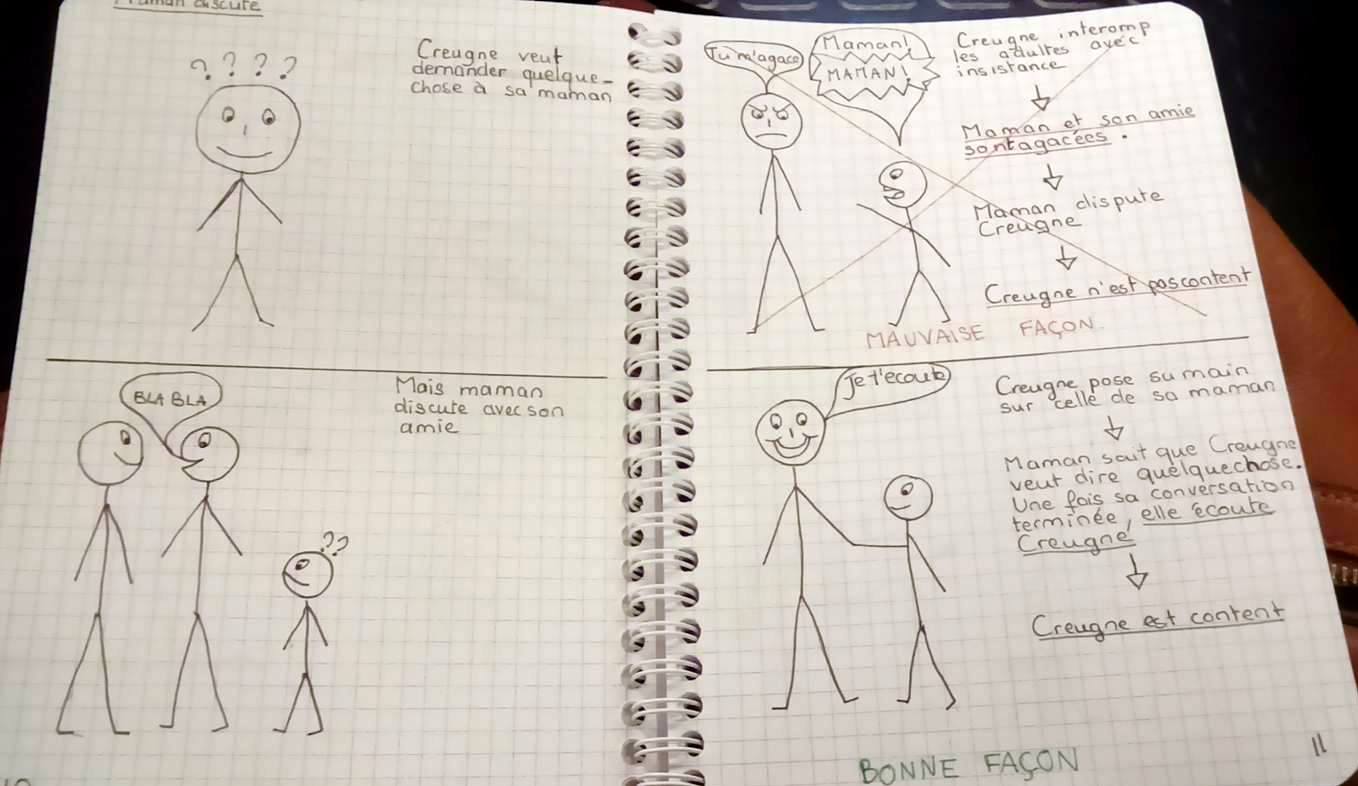 Maman discute
? ? ? ?
Creugne veut
demander quelque-
chose à sa maman
BLA BLA
Mais maman
discute avec son
amie
??
Tu m'agace
Maman!
MAMAN!
Creugne interomp
les adultes avec
insistance
Maman et son amie
sont agacées.
Maman dispute
Creugne
Creugne n'est pas content
MAUVAISE FAÇON
Je t'ecoute
Creugne pose su main
sur celle de sa maman
Maman sait que Creugne
veut dire quelquechose.
Une fois sa conversation
terminée, elle écoute
Creugne
Creugne est content
BONNE FAÇON
11